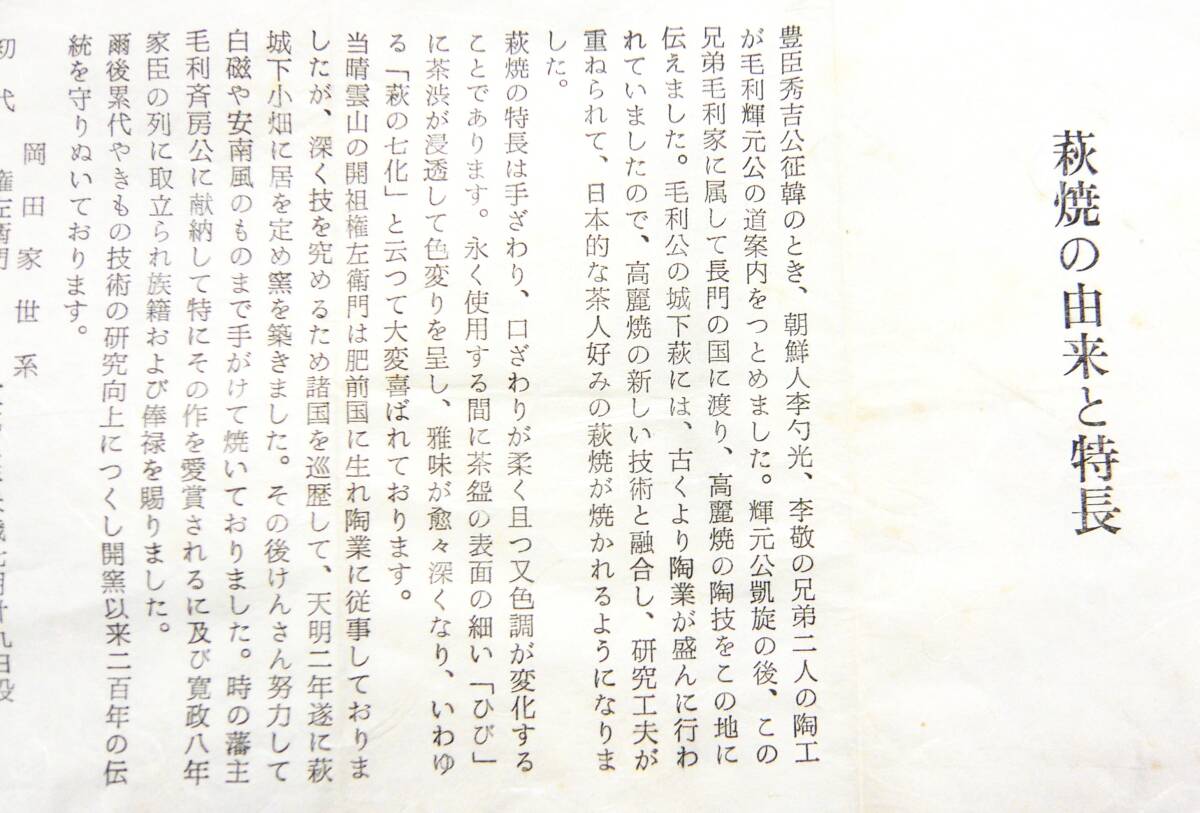 萩焼の由来と特長
豊臣秀吉公征韓のとき、朝鮮人李勺光、李敬の兄弟二人の陶工
が毛利輝元公の道案内をつとめました。輝元公凱旋の後、この
兄弟毛利家に属して長門の国に渡り、高麗焼の陶技をこの地に
伝えました。毛利公の城下萩には、古くより陶業が盛んに行わ
れていましたので、高麗焼の新しい技術と融合し、研究工夫が
重ねられて、日本的な茶人好みの萩焼が焼かれるようになりま
した。
萩焼の特長は手ざわり、口ざわりが柔く且つ又色調が変化する
ことであります。永く使用する間に茶盌の表面の細い「ひび」
に茶渋が浸透して色変りを呈し、雅味が愈々深くなり、いわゆ
る「萩の七化」と云つて大変喜ばれております。
当晴雲山の開祖権左衛門は肥前国に生れ陶業に従事しておりま
したが、深く技を究めるため諸国を巡歴して、天明二年遂に萩
城下小畑に居を定め窯を築きました。その後けんさん努力して
白磁や安南風のものまで手がけて焼いておりました。時の藩主
毛利斉房公に献納して特にその作を愛賞されるに及び寛政八年
家臣の列に取立られ族籍および俸禄を賜りました。
爾後累代やきもの技術の研究向上につくし開窯以来二百年の伝
統を守りぬいております。
岡田家世系
初代 権左衛門 七月廿九日没